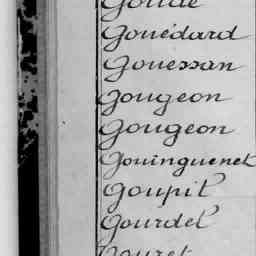 Goudé
Gouédard
Gouessan
Gougeon
Gougeon
Gouinguenet
Goupil
Gourdel
Gouret